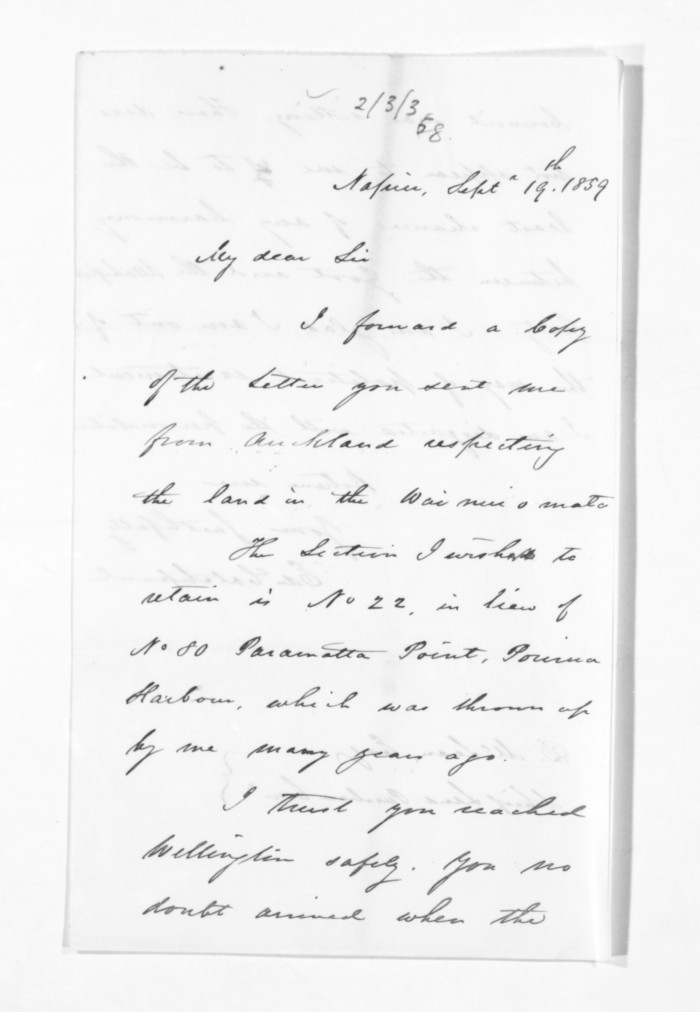 2/3/3
58.
Napier, Septr 19th. 1859
My dear Sir
I forward a Copy
of the Letter you sent me
from Auckland respecting
the land in the Wai nui o mata
The Section I wish to
retain is No 22, in lieu of
No 80 Paramatta Point, Porirua
Harbour, which was thrown up
by me many years ago.
I trust you reached
Wellington safely. You no
doubt arrived when the